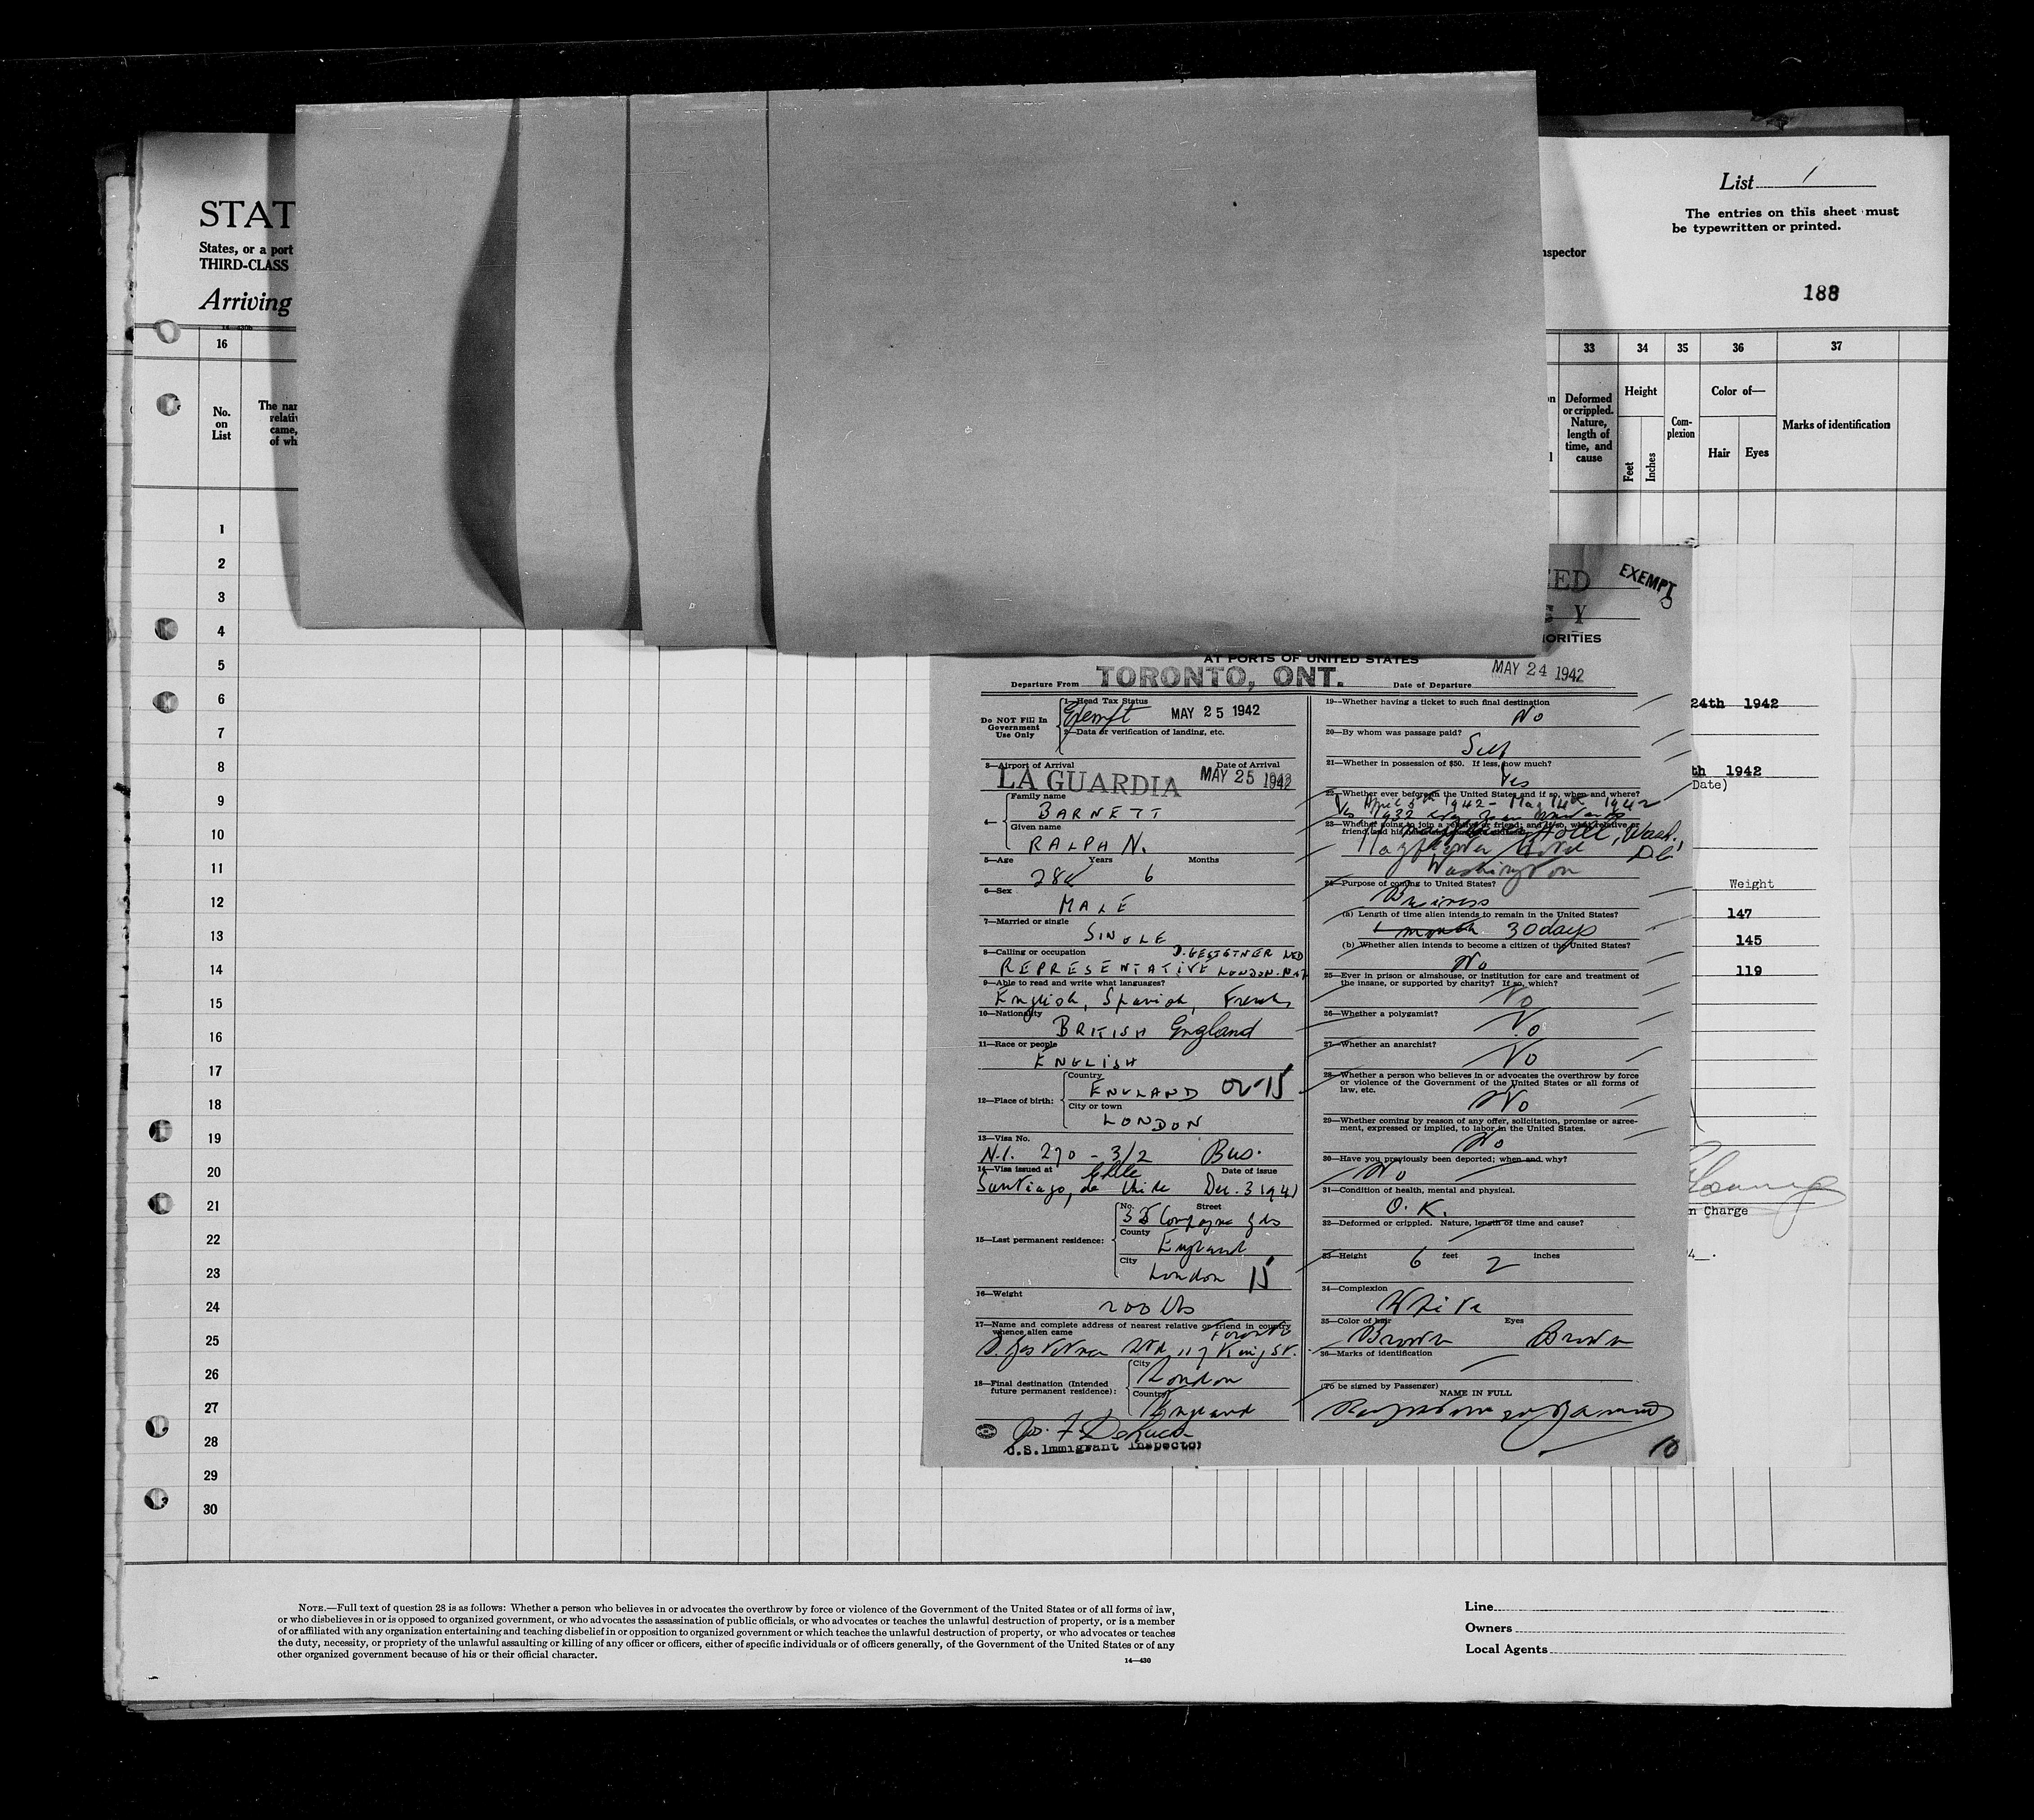 STAT
States, or a port
THIRD-CLASS
Arriving
List 1
The entries on this sheet must
be typewritten or printed.
nspector
188
16
33
34
35
36
37
No.
on
List
The nar
relativ
came,
of wh
Deformed
or crippled.
Nature,
length of
time, and
cause
Height
Feet
Inches
Com-
plexion
Color of—
Hair
Eyes
Marks of identification
1
2
3
4
5
6
7
8
9
10
11
12
13
14
15
16
17
18
19
20
21
22
23
24
25
26
27
28
29
30
EXEMPT
ED
E Y
ORITIES
AT PORTS OF UNITED STATES
Departure From TORONTO, ONT. Date of Departure MAY 24 1942
Do NOT Fill In
Government
Use Only
1—Head Tax Status
Exempt MAY 25 1942
2—Data or verification of landing, etc.
3—Airport of Arrival Date of Arrival
LA GUARDIA MAY 25 1942
4—
Family name
BARNETT
Given name
RALPH N.
5—Age Years Months
28 6
6—Sex
MALE
7—Married or single
SINGLE
8—Calling or occupation D. GESTETNER LTD
REPRESENTATIVE LONDON. N 17
9—Able to read and write what languages?
English, Spanish, French
10—Nationality
BRITISH England
11—Race or people
ENGLISH
12—Place of birth:
Country
ENGLAND 02-15
City or town
LONDON
13—Visa No.
N.I. 270 - 3/2 Bus.
14—Visa issued at Chile Date of issue
Santiago, de Chile Dec. 3 1941
15—Last permanent residence:
No. Street
35 Compayne Gdns
County
England
City
London 15
16—Weight
200 lbs
17—Name and complete address of nearest relative or friend in country
whence alien came Toronto
D. Gestetner Ltd, 117 King St.
18—Final destination (Intended
future permanent residence):
City
London
Country
England
U.S. Immigrant Inspector
19—Whether having a ticket to such final destination
No
20—By whom was passage paid?
Self
21—Whether in possession of $50. If less, how much?
Yes
22—Whether ever before in the United States and if so, when and where?
Yes April 5th 1942 - May 14th 1942
Yes 1932
23—Whether going to join a relative or friend; and if so, what relative or
friend, and his
Hotel, Wash.
Mayflower Hotel D.C.
Washington
24—Purpose of coming to United States?
Business
(a) Length of time alien intends to remain in the United States?
1 month 30 days
(b) Whether alien intends to become a citizen of the United States?
No
25—Ever in prison or almshouse, or institution for care and treatment of
the insane, or supported by charity? If so, which?
No
26—Whether a polygamist?
No
27—Whether an anarchist?
No
28—Whether a person who believes in or advocates the overthrow by force
or violence of the Government of the United States or all forms of
law, etc.
No
29—Whether coming by reason of any offer, solicitation, promise or agree-
ment, expressed or implied, to labor in the United States.
No
30—Have you previously been deported; when and why?
No
31—Condition of health, mental and physical.
O.K.
32—Deformed or crippled. Nature, length of time and cause?
33—Height 6 feet 2 inches
34—Complexion
White
35—Color of hair Eyes
Brown Brown
36—Marks of identification
(To be signed by Passenger)
NAME IN FULL
10
24th 1942
th 1942
Date)
Weight
147
145
119
n Charge
NOTE.—Full text of question 28 is as follows: Whether a person who believes in or advocates the overthrow by force or violence of the Government of the United States or of all forms of law,
or who disbelieves in or is opposed to organized government, or who advocates the assassination of public officials, or who advocates or teaches the unlawful destruction of property, or is a member
of or affiliated with any organization entertaining and teaching disbelief in or opposition to organized government or which teaches the unlawful destruction of property, or who advocates or teaches
the duty, necessity, or propriety of the unlawful assaulting or killing of any officer or officers, either of specific individuals or of officers generally, of the Government of the United States or of any
other organized government because of his or their official character.
14—430
Line
Owners
Local Agents